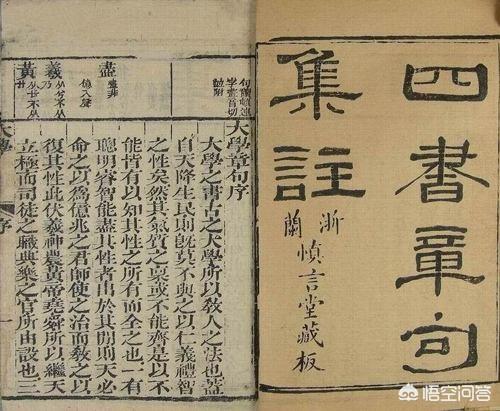 四書章句
集註
浙蘭
慎言堂藏板
大學章句序
大學之書古之大學所以教人之法也蓋
自天降生民則旣莫不與之以仁義禮智
之性矣然其氣質之稟或不能齊是以不
能皆有以知其性之所有而全之也一有
聰明睿智能盡其性者出於其間則天必
命之以爲億兆之君師使之治而教之以
復其性此伏羲神農黃帝堯舜所以繼天
立極而司徒之職典樂之官所由設也三
羲
黃
大學
序
一
悟空问答